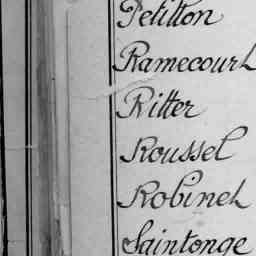 Petitton
Ramecourt
Ritter
Roussel
Robinet
Saintonge